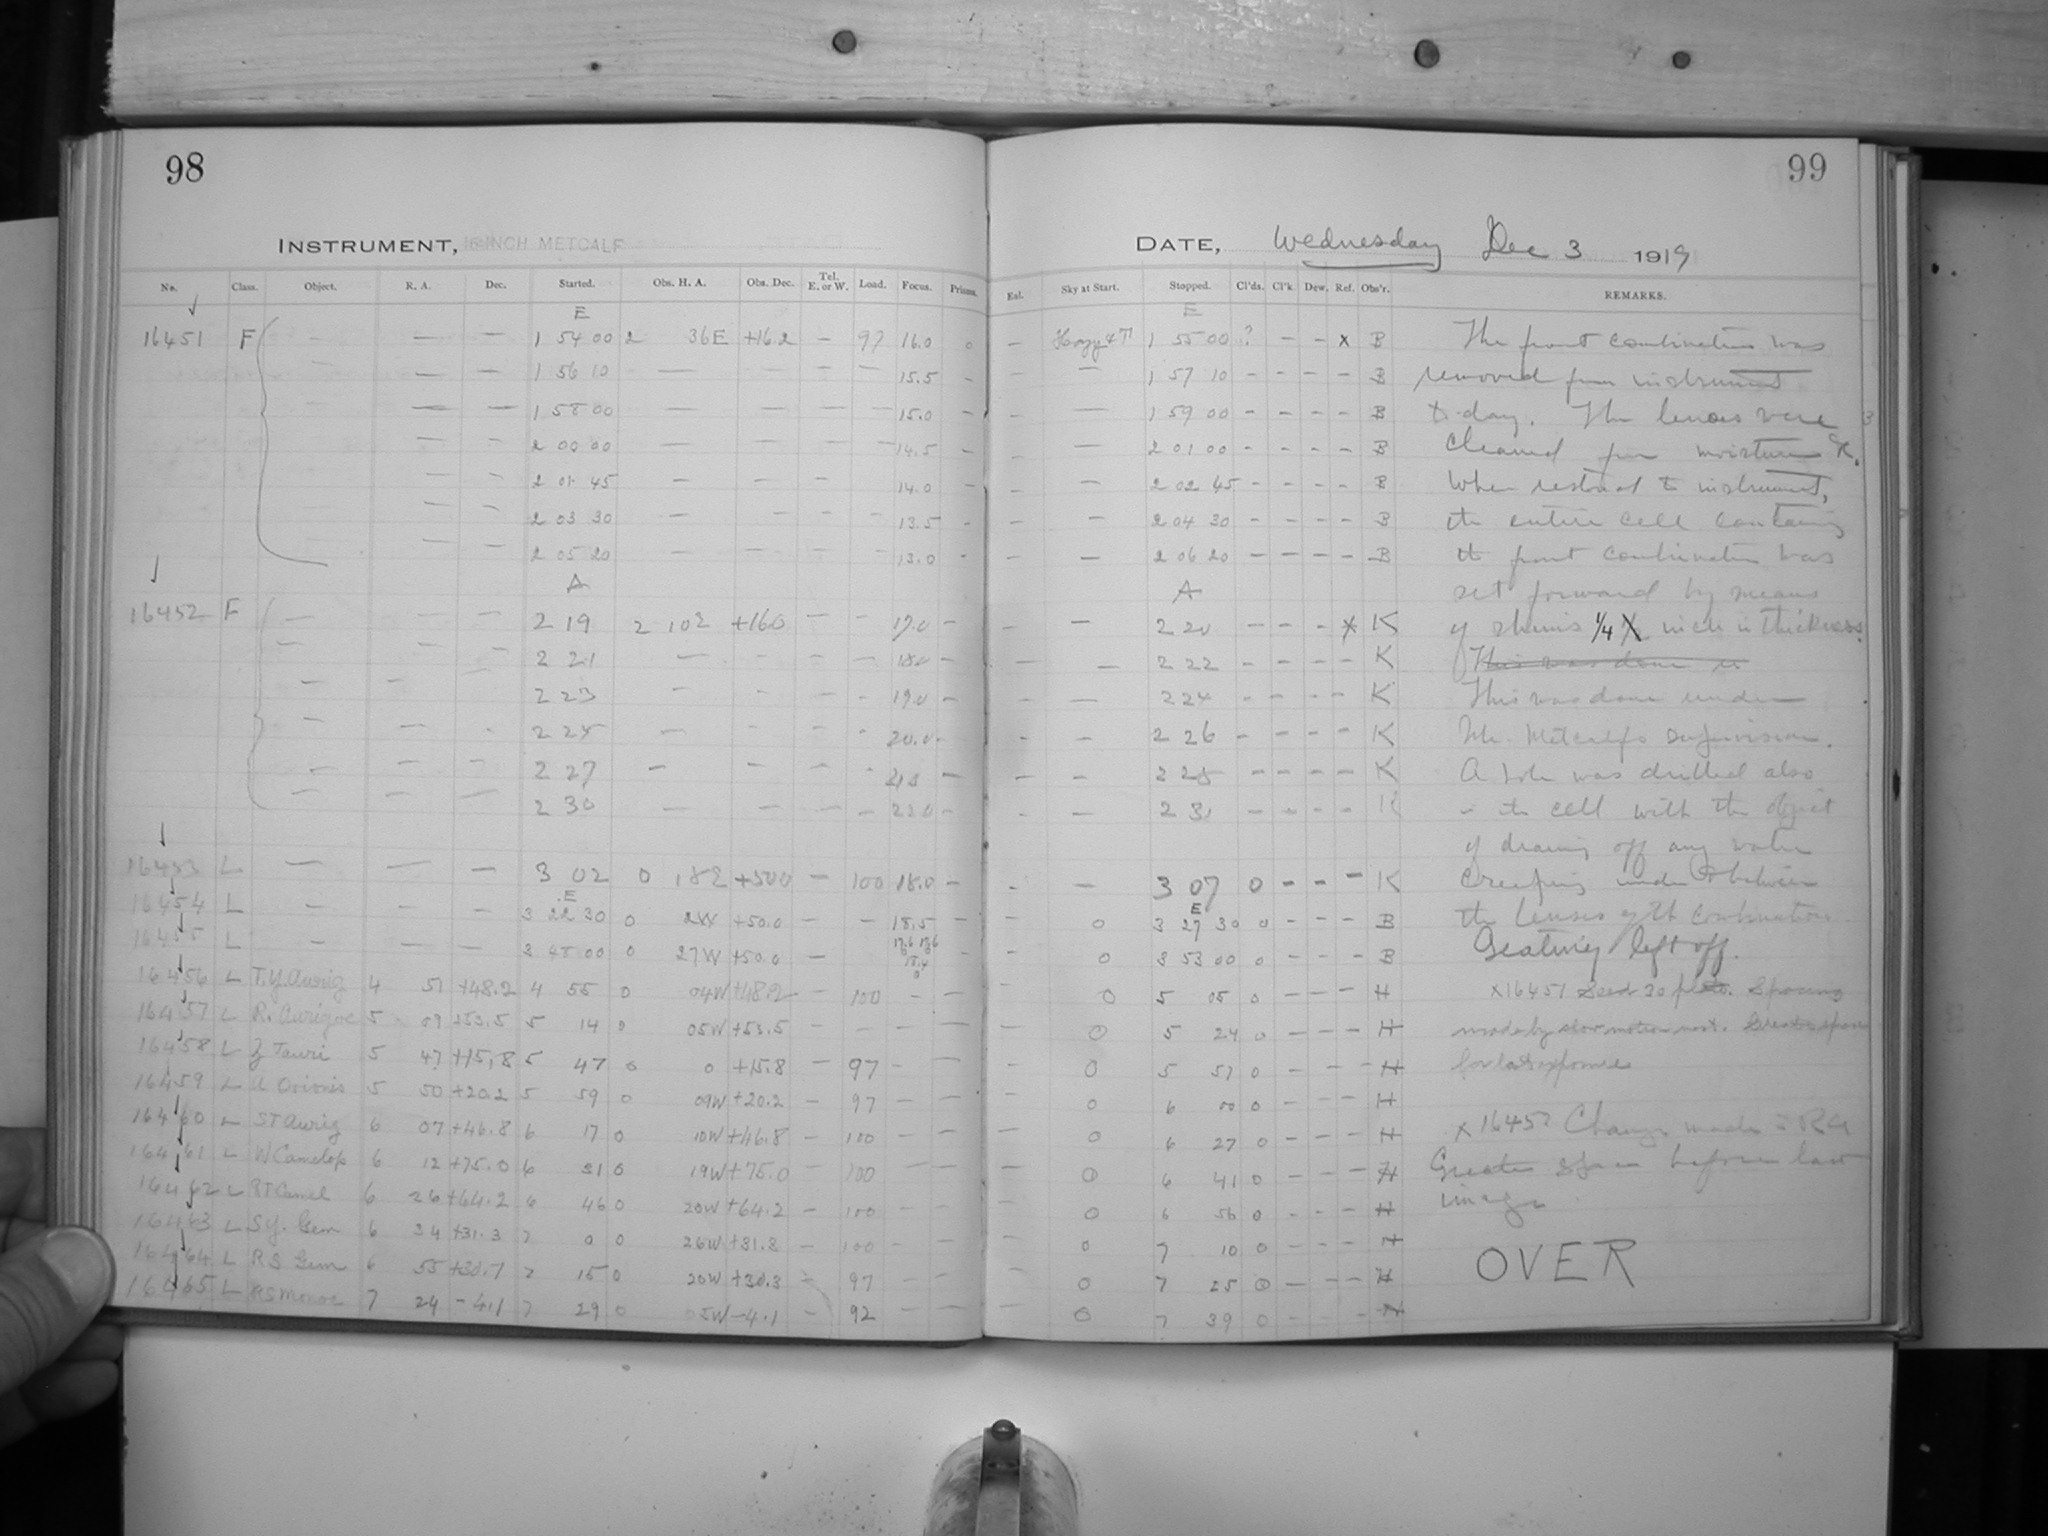 98
INSTRUMENT, 16 INCH METCALF
No. Class. Object. R. A. Dec. Started. Obs. H. A. Obs. Dec. Tel. E. or W. Load. Focus. Prisms.
E
16451 F — — — 1 54 00 2 36E +16.2 — 97 16.0 0
— — 1 56 10 — — — — 15.5 -
— — 1 58 00 — — — — 15.0 -
— — 2 00 00 — — — — 14.5 -
— — 2 01 45 — — — 14.0 -
— — 2 03 30 — — — — 13.5 -
— — 2 05 20 — — — — 13.0 -
A
16452 F — — — 2 19 2 102 +160 — — 17.0 -
— — — 2 21 — — — 18.0 -
— — 2 23 — — — 19.0 -
— — — 2 25 — — — 20.0 -
— — — 2 27 — — — -
— — — 2 30 — — — — 22.0 -
16453 L — — — 3 02 0 182 +500 — 100 18.0 -
E
16454 L — — — 3 22 30 0 2W +50.0 — — 18.5 -
16455 L — — — 3 48 00 0 27W +50.0 —
16456 L T.Y. Aurig 4 51 +48.2 4 55 0 04W +48.2 — 100 - -
16457 L R. Aurigae 5 09 +53.5 5 14 0 05W +53.5 — — - -
16458 L Tauri 5 47 +15.8 5 47 0 0 +15.8 — 97 - —
16459 L U Orionis 5 50 +20.2 5 59 0 09W +20.2 — 97 - —
16460 L ST Aurig 6 07 +46.8 6 17 0 10W +46.8 — 100 - —
16461 L W Camelop 6 12 +75.0 6 31 0 19W +75.0 — 100 — —
16462 L ST Camel 6 26 +64.2 6 46 0 20W +64.2 — 100 - —
16463 L SY. Gem 6 34 +31.3 7 0 0 26W +31.3 — 100 - —
16464 L RS Gem 6 55 +30.7 7 15 0 20W +30.3 — 97 - —
16465 L RS Monoc 7 24 -4.1 7 29 0 05W -4.1 — 92 — —
99
DATE, Wednesday Dec 3 1919
Eal. Sky at Start. Stopped. Cl'ds. Cl'k Dew. Ref. Obs'r. REMARKS.
E
— 1 55 00 ? — — x B
— — 1 57 10 - - - - B
- — 1 59 00 - - - - B
- — 2 01 00 - - - - B
- — 2 02 45 - - - - B
- — 2 04 30 - - - - B
- — 2 06 20 - - - - B
A
- — 2 20 - - - x K
— — 2 22 - - - - K
— 2 24 - - - - K
- - 2 26 - - - - K
- - 2 28 - - - - K
- — 2 31 - - - - K
- — 3 07 0 - - - K
E
- 0 3 27 30 0 - - - B
- 0 3 53 00 0 - - - B
0 5 05 0 - - - H
0 5 24 0 - - - H
0 5 57 0 - - - H
0 6 00 0 - - - H
0 6 27 0 - - - H
0 6 41 0 - - - H
0 6 56 0 - - - H
0 7 10 0 - - - H
0 7 25 0 - - - H
0 7 39 0 - - - H
The front combination was
removed from instrument
to-day. The lenses were
cleaned from moisture &c.
When restored to instrument,
the entire cell containing
the front combination was
set forward by means
of shims 1/4 inch in thickness.
This was done
This was done under
Mr. Metcalf's supervision.
A hole was drilled also
in the cell with the object
of drawing off any water
creeping under or between
the lenses of the combination
left off.
x16451 Seed 30 plate. Spacing
made by slow motion
for last exposure
x 16452 Change made in RA
Greater space before last
image
OVER